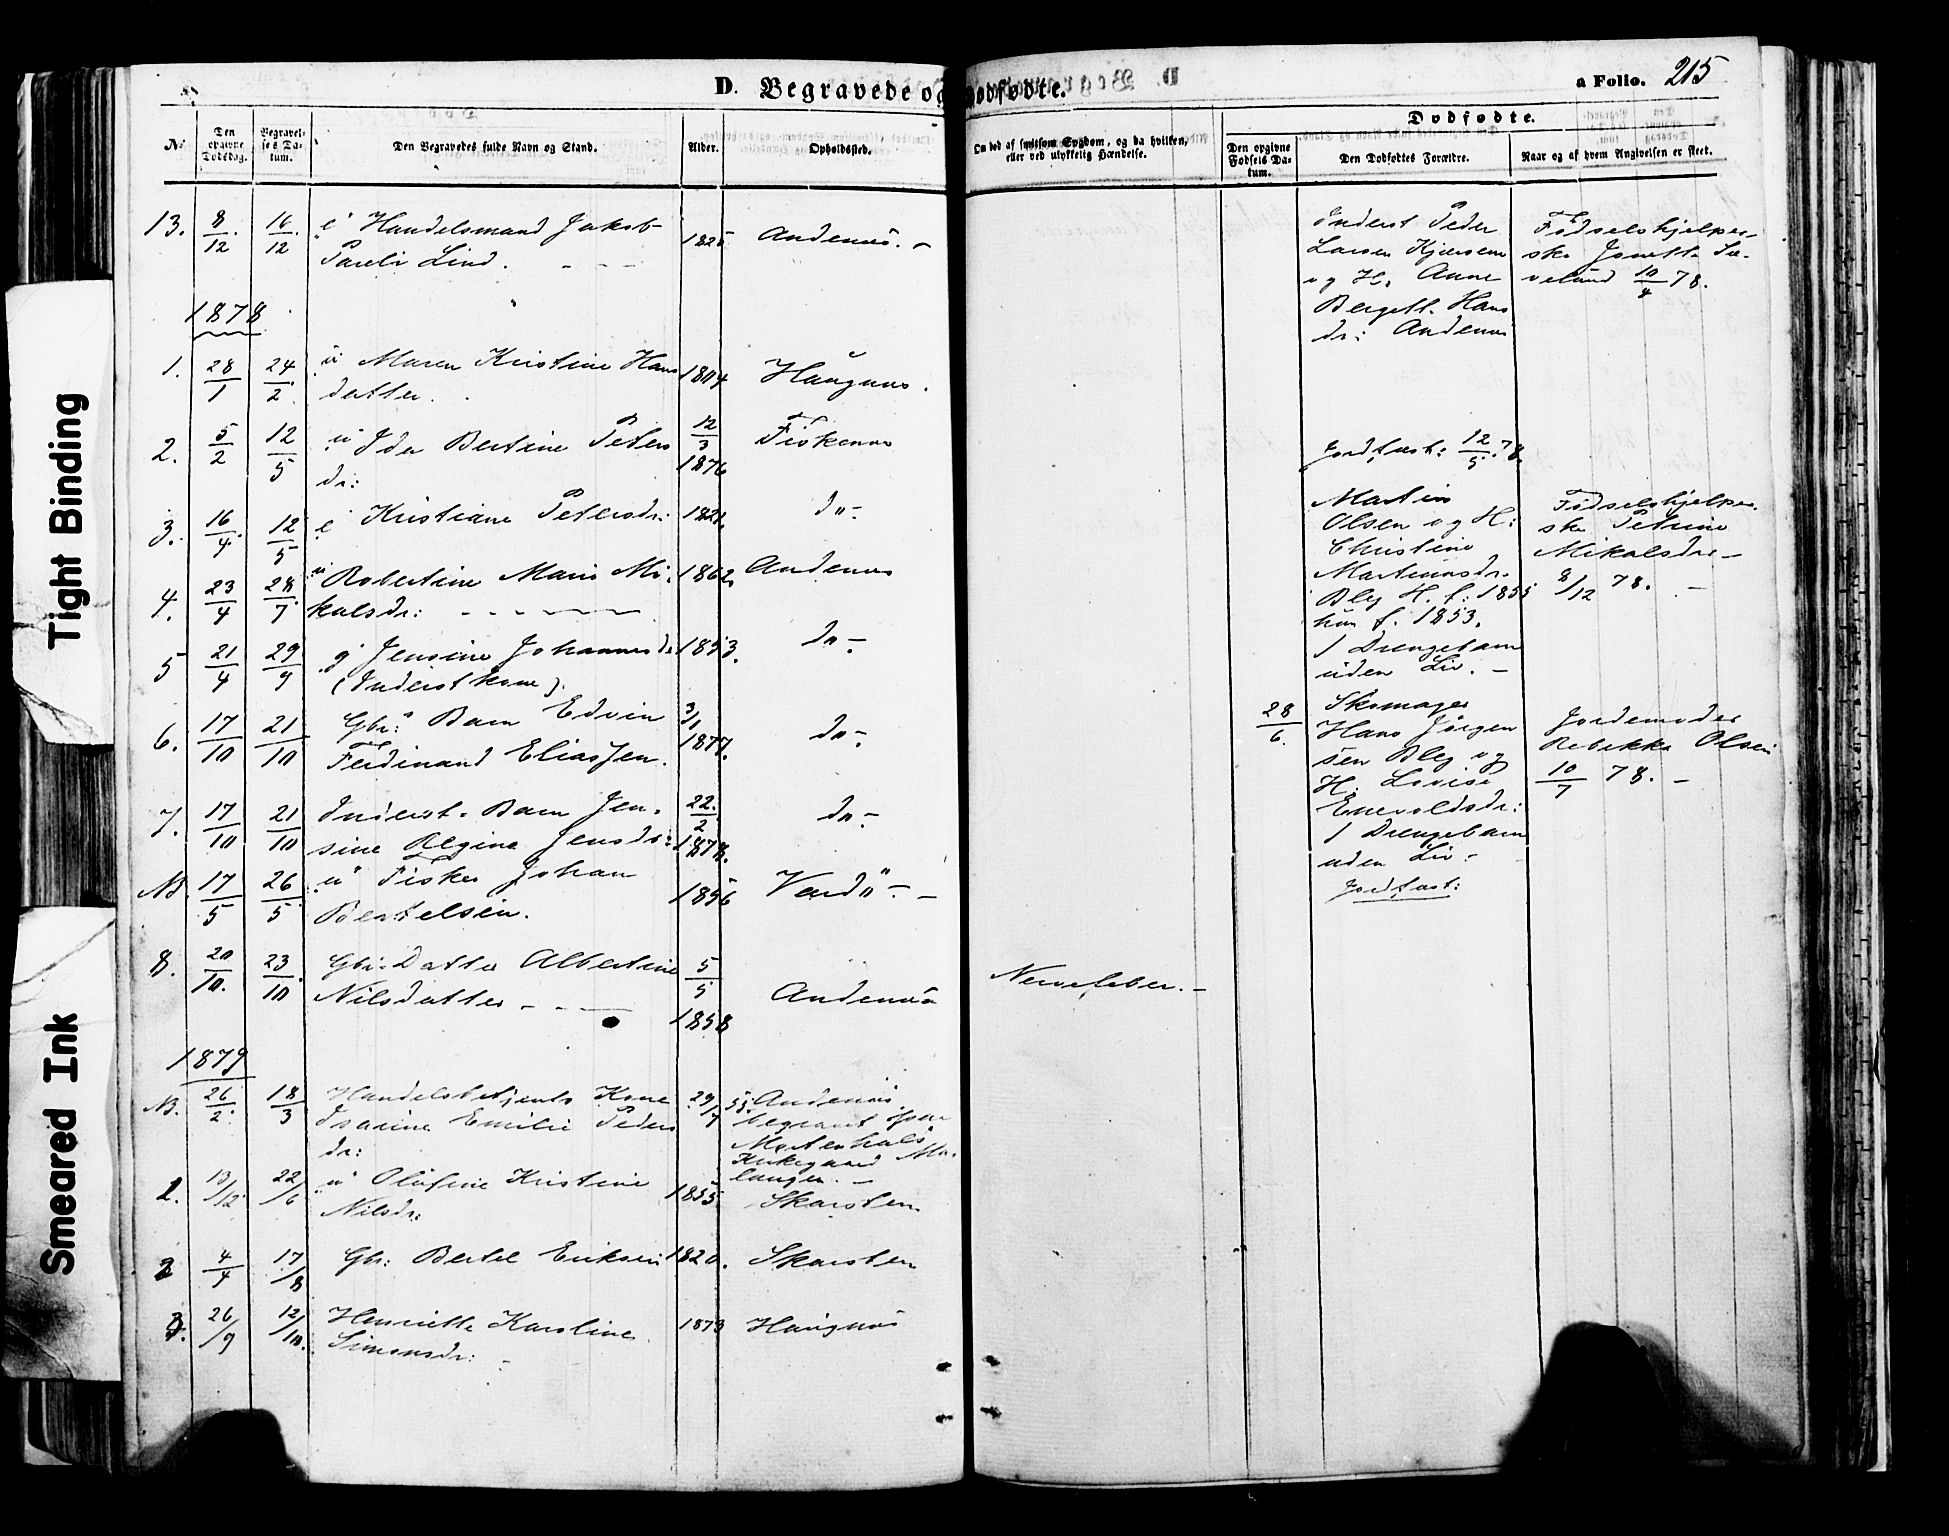 D. Begravede og Dødfødte.
a Folio. 215
Dødfødte.
No
Den opgivne Dødsdag.
Begravelses Datum.
Den Begravedes fulde Navn og Stand.
Alder.
Opholdssted.
Om død af smitsom Sygdom, og da hvilken, eller ved ulykkelig Hændelse.
Den opgivne Fødsels Datum.
Den Dødfødtes Forældre.
Naar og af hvem Angivelsen er skeet.
13. 8/12 16/12 e Handelsmand Jakob 1825 Andenæs. -
Pareli Lind. - - -
1878
1. 28/1 24/2 u Maren Kristine Hans 1804 Haugnæs.
datter.
2. 5/2 12/5 u Ida Bertine Peters 12/3 1876 Fiskenæs
dr:
3. 16/4 12/5 e Kristiane Petersdr: do-
4. 23/4 28/7 u Robertine Marie Mi- 1862 Andenæs
kalsdr: - - - -
5 21/4 29/9 g Jensine Johannesdr 1853. do-
(Inderst kone).
6. 17/10 21/10 Gbr: Barn Edvin 3/1 1877. do-
Ferdinand Eliassen.
7. 17/10 21/10 Inderst. Barn Jen- 22/2 1878. do-
sine Regine Jensdr:
NB. 17/5 26/5 u Fisker Johan 1856 Vardö - -
Bertelsen.
8. 20/10. 23/10 Gbr: Datter Albertine 5/5 1858 Andenæs
Nilsdatter - - -
Nervefeber. -
1879
NB. 26/2 18/3 Handelsbetjents Kone 29/7 55 Andenæs,
Isarine Emilie Peders begravet paa
dr:
Mortenhals
Kirkegaard Ma-
langen. -
1. 13/12 22/6 u Olufine Kristine 1855. Skarsten
Nilsdr:
2 4/4 17/8 Gbr: Bertel Eriksen 1820. Skarsten
3. 26/9 12/10. Henriette Karoline 1873 Haugnæs
Simonsdr: -
Inderst Peder
Larsen Kjærsem
og H. Anne
Bergett. Hans
dr: Andenæs
Fødselshjelper-
ske Jonette Sæ-
velund 10/4 78.
Jordfæst: 12/5 78.
Martin
Olsen og H:
Christine
Martinusdr.
Bley H. f: 1855
hun f. 1853.
1 Drengebarn
uden Liv. -
Fødselshjelper-
ske Petrine
Mikalsdr -
8/12 78. -
28/6. Skomager
Hans Jørgen
sen Bley og
H. Lovise
Enevoldsdr:
1 Drengebarn
uden Liv -
Jordfæst:
Jordemoder
Rebekka Olsen
10/7 78. -
Tight Binding
Smeared Ink